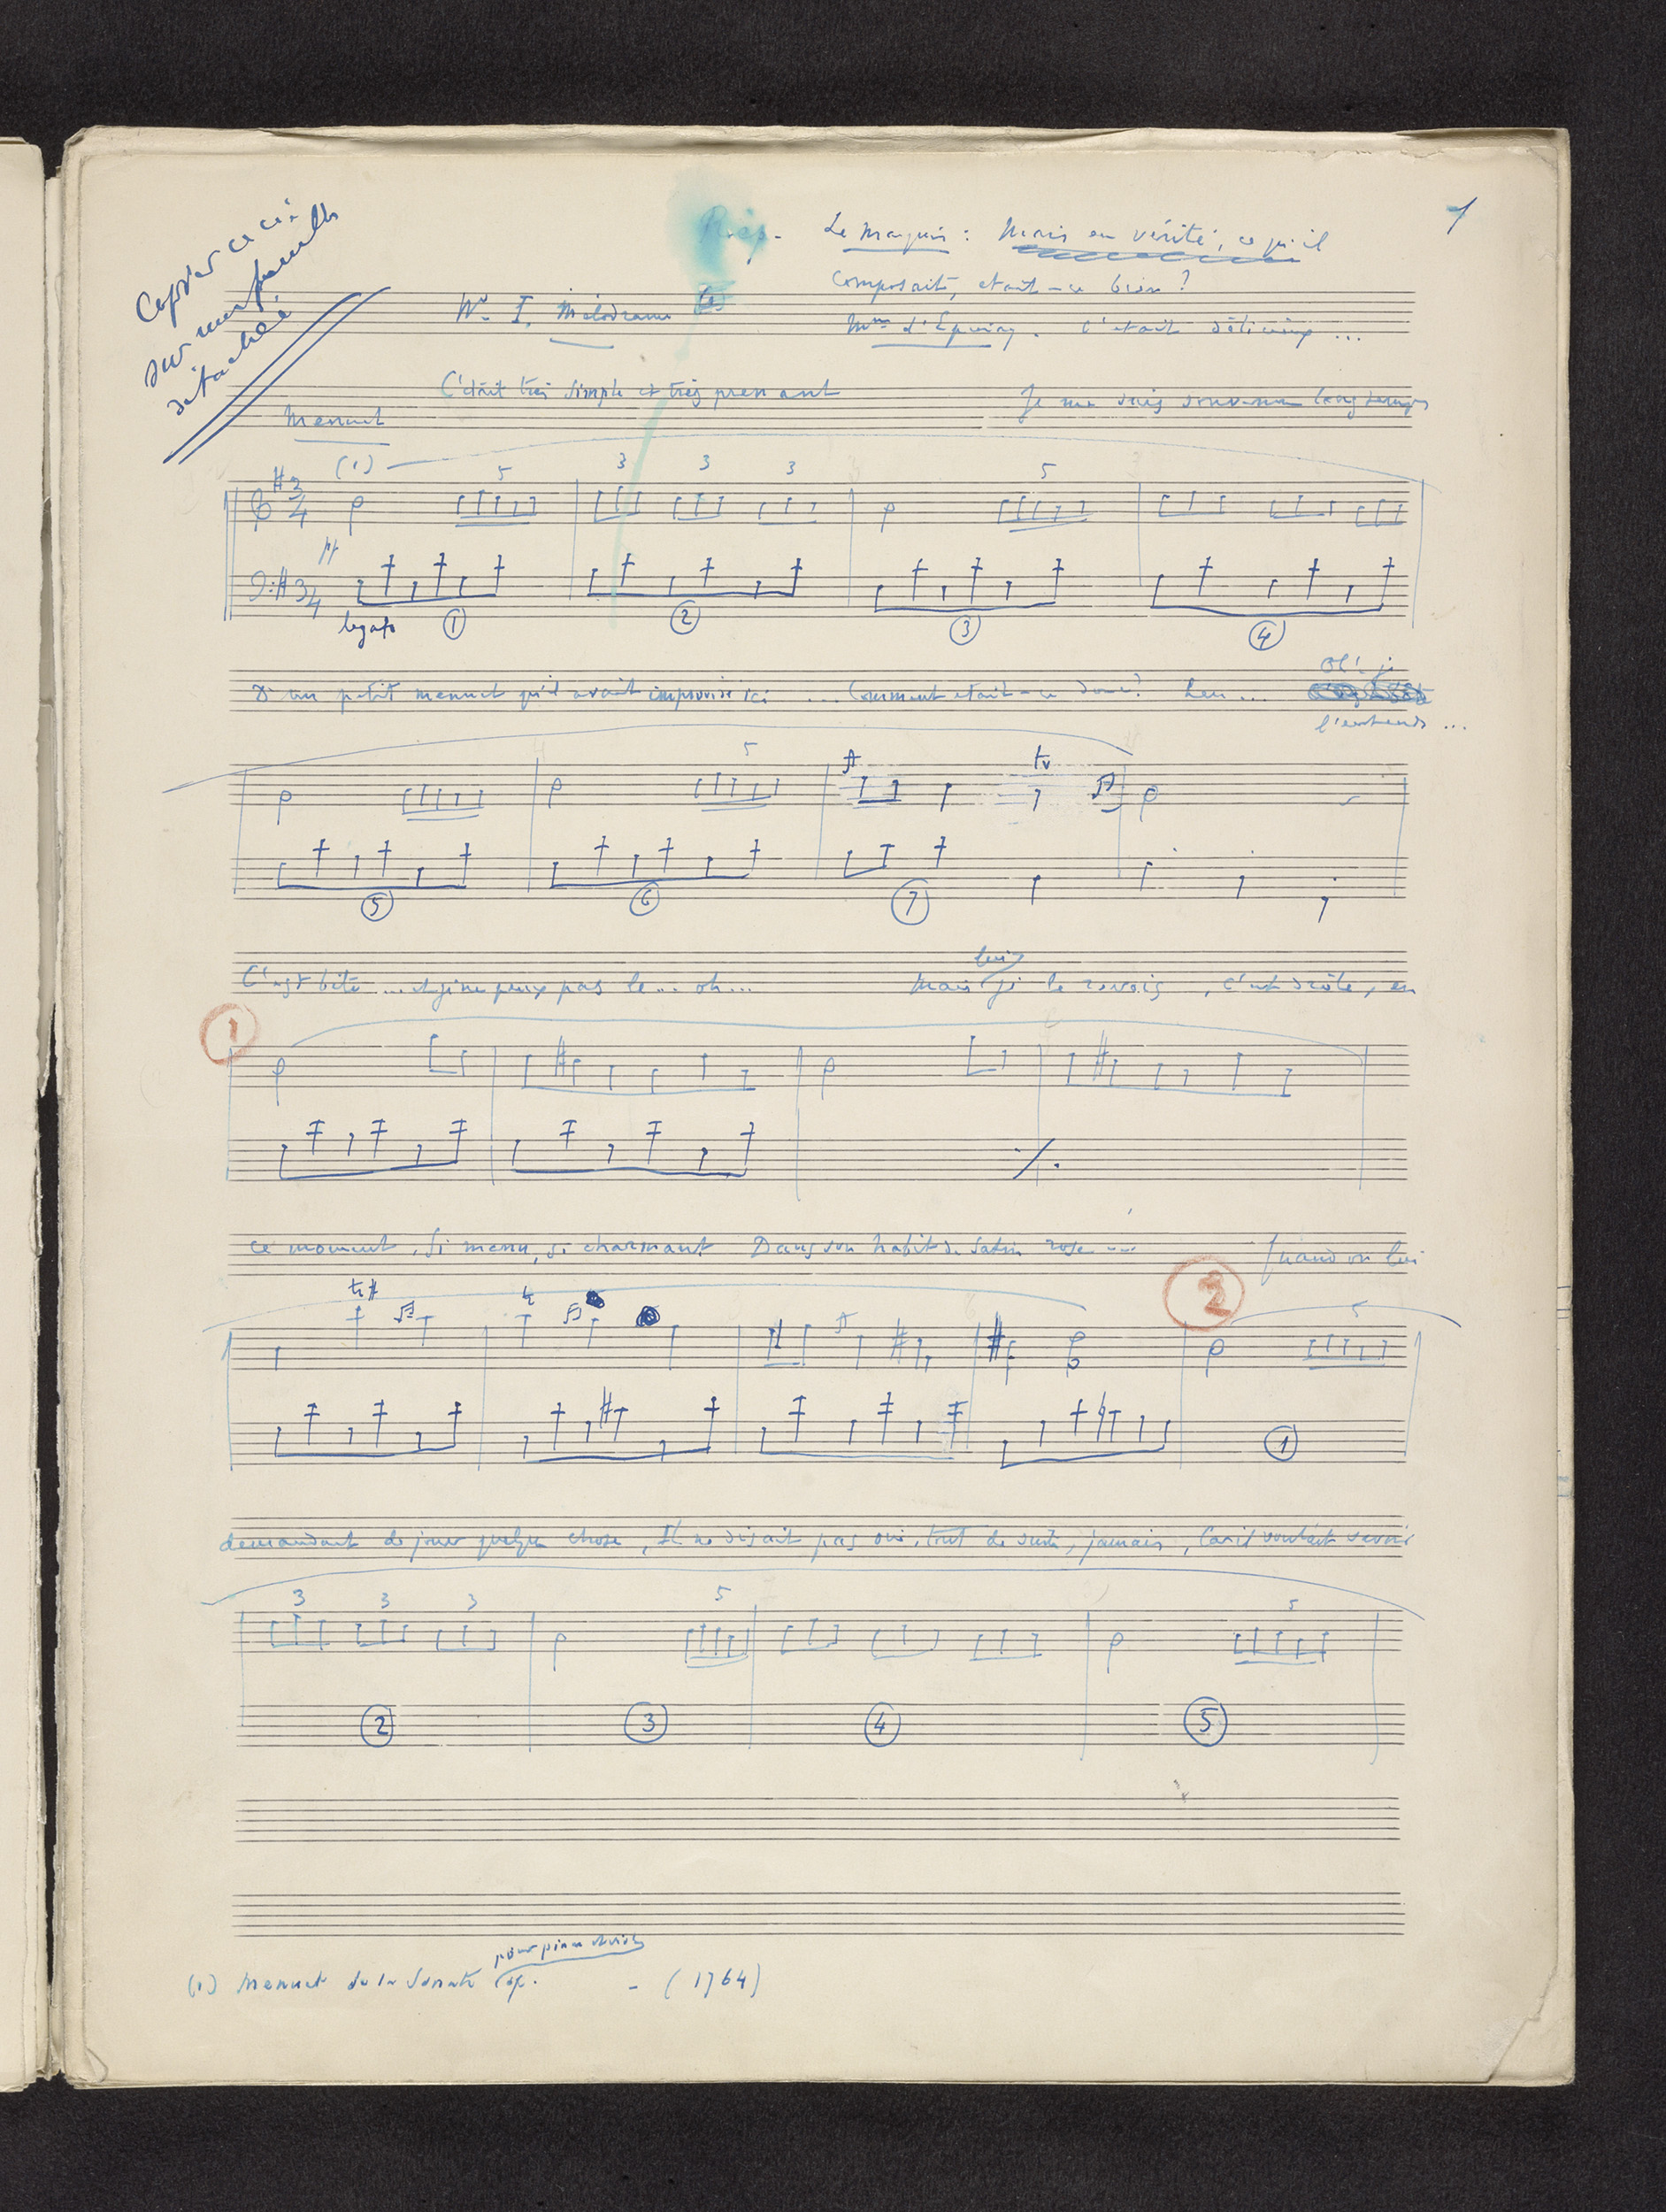 1
Copier ceci
sur une feuille
détachée
Rép. Le Marquis : Mais en vérité, ce qu'il
composait, était-ce bien ?
No I. Mélodrame
Mme d'Epinay. C'était délicieux ...
C'était très simple et très prenant Je me suis souvenue longtemps
Menuet
(1) 5 3 3 3 5
3 4
3 4
legato 1 2 3 4
Oh! je
d'un petit menuet qu'il avait improvisé ici ... Comment était-ce donc? heu ...
l'entends ...
5 tr
5 6 7
lui
C'est bête ... et je ne peux pas le ... oh ... Mais je le revois, c'est drôle, en
1
ce moment, si menu, si charmant Dans son habit de satin rose ... Quand on lui
tr tr 2 5
1
demandait de jouer quelque chose, Il ne disait pas oui, tout de suite, jamais, Car il voulait savoir
3 3 3 5 5
2 3 4 5
pour piano et violon
(1) Menuet de la Sonate op. - (1764)